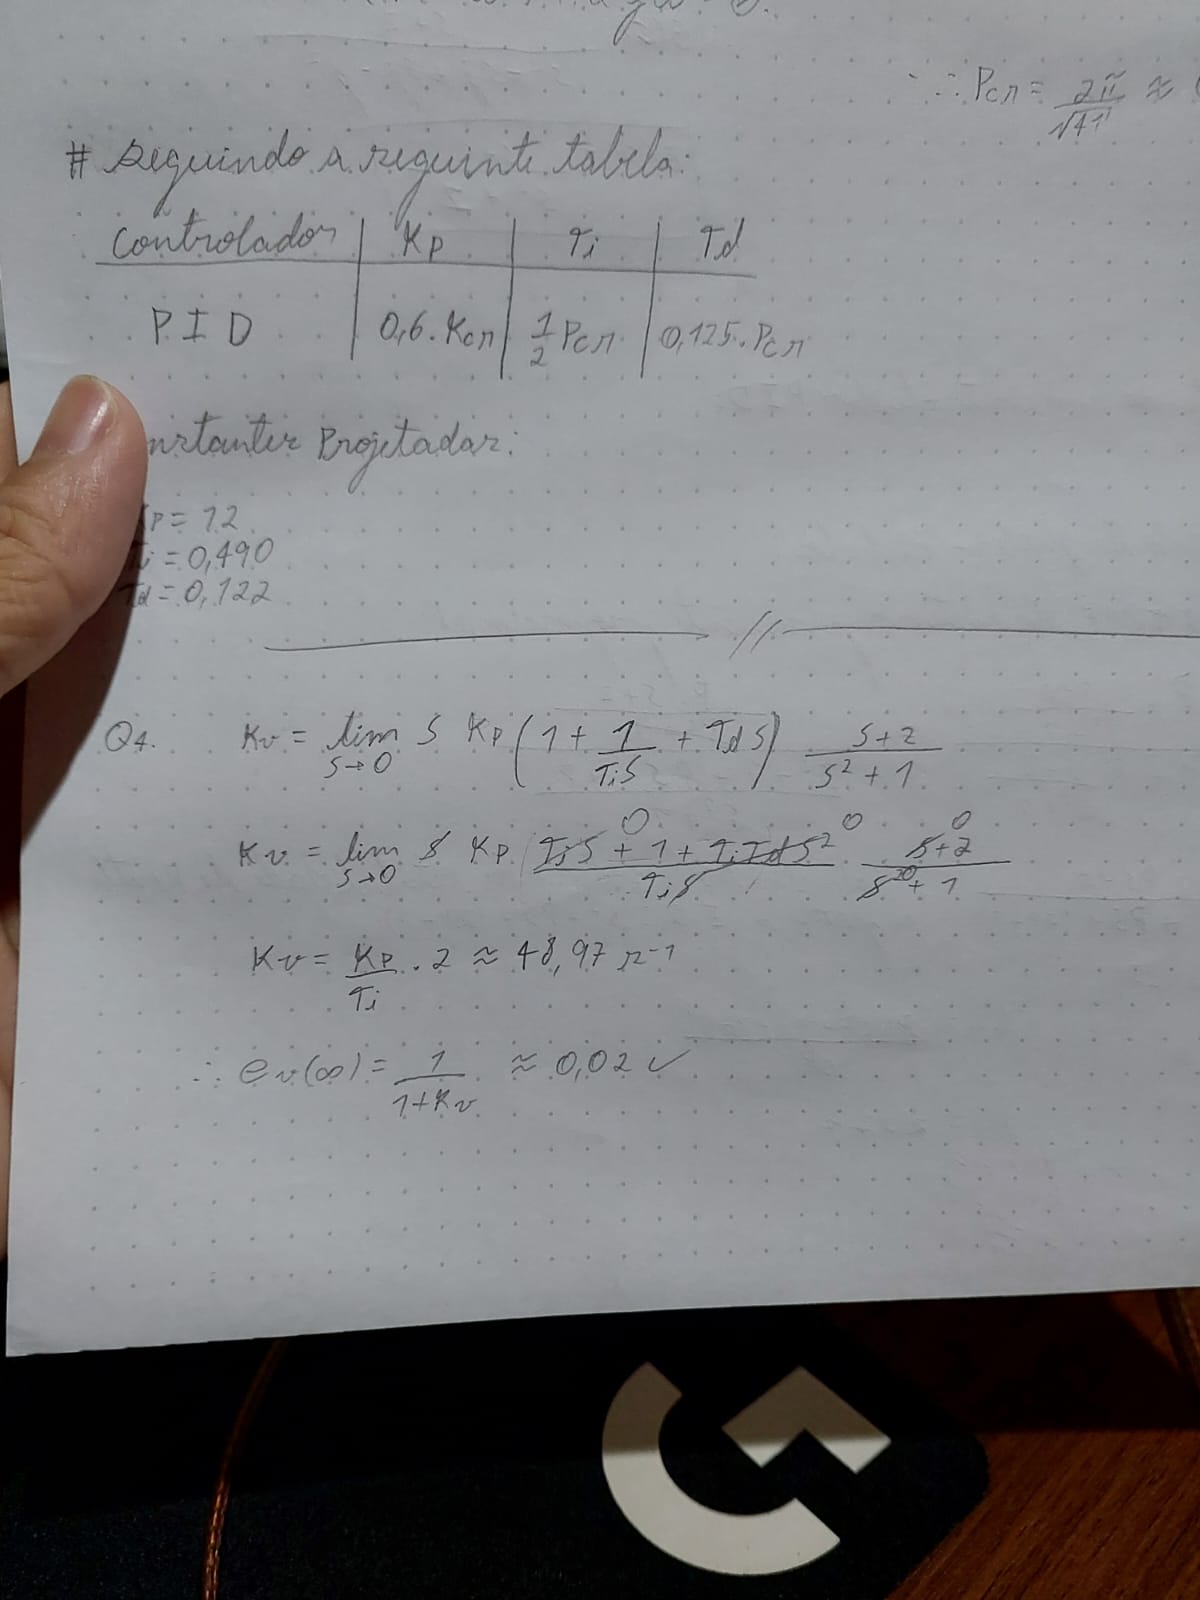 ∴ Pcr = 2π/√41 ≈
# Seguindo a seguinte tabela:
Controlador | Kp | Ti | Td
P I D | 0,6.Kcr | 1/2 Pcr | 0,125.Pcr
nstantes Projetadas:
Kp = 12
Ti = 0,490
Td = 0,122
Q4. Kv = lim s→0 s Kp (1 + 1/Tis + Tds) s+2/s²+1
Kv = lim s→0 s Kp Tis + 1 + TiTds²/Tis s+2/s²+1
0 0 0 0
Kv = Kp/Ti . 2 ≈ 48,97 s⁻¹
∴ ev(∞) = 1/1+Kv ≈ 0,02 ✓